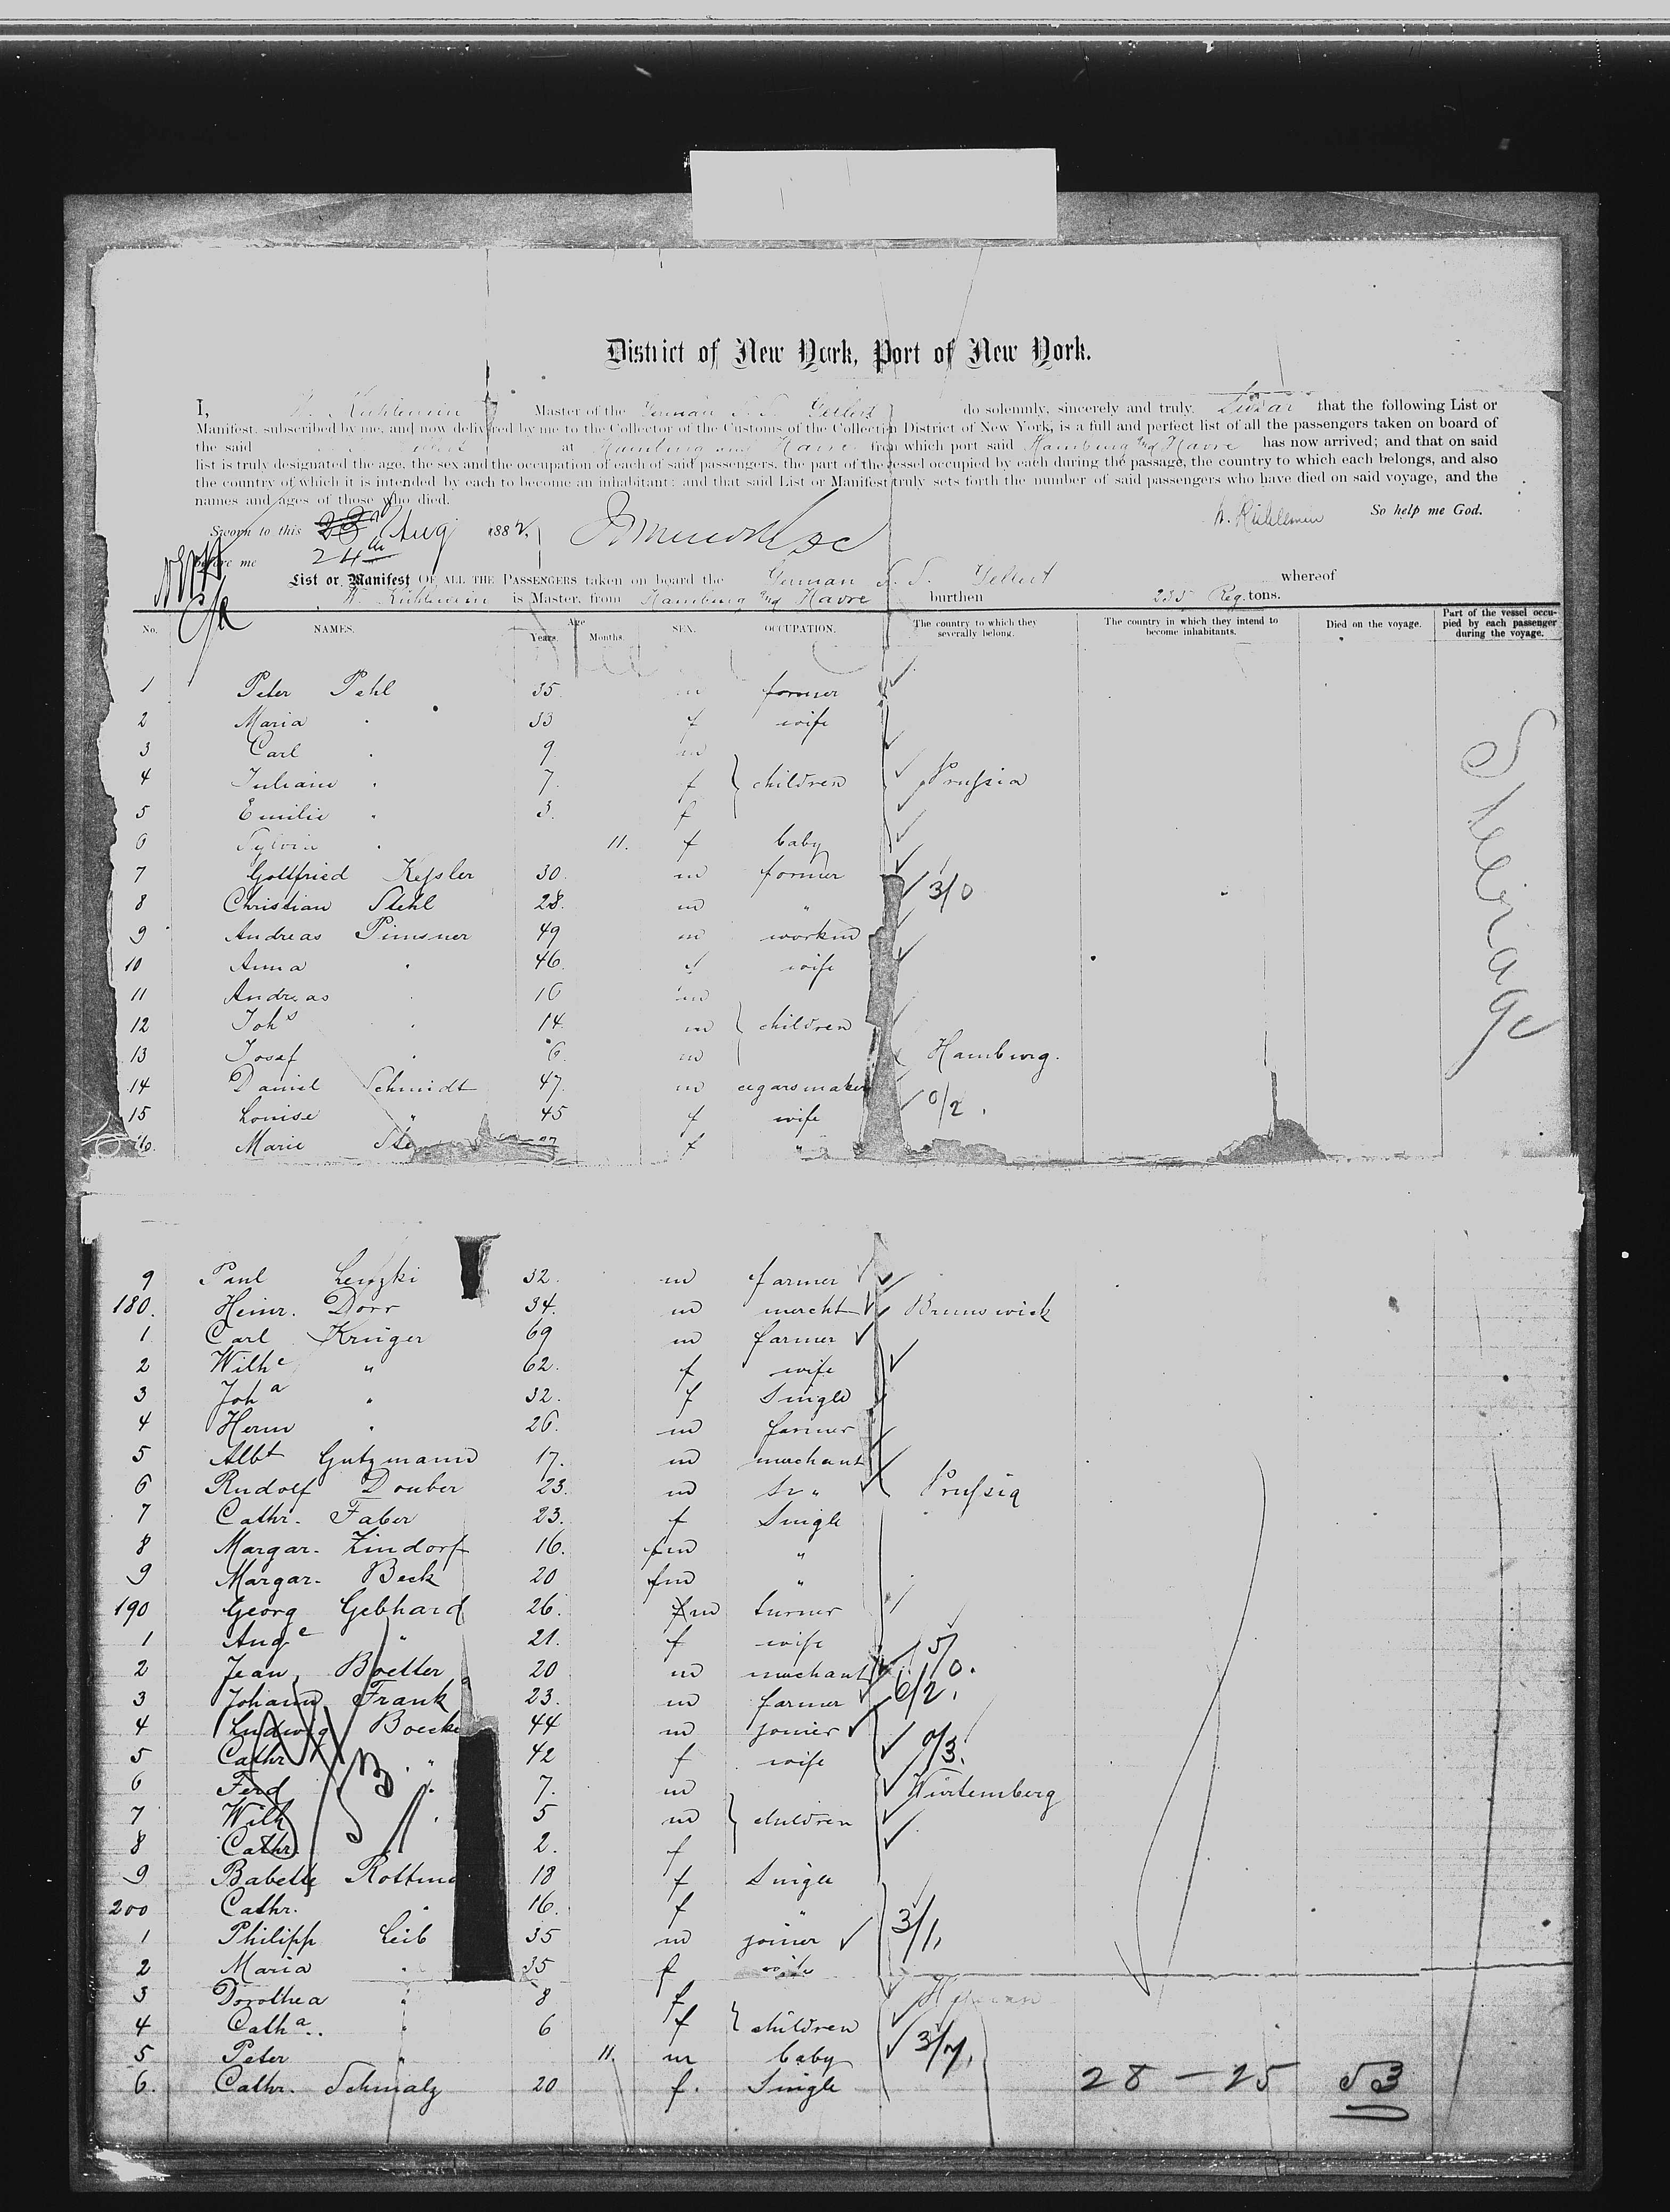 District of New York, Port of New York.
I, W. Kühlewein Master of the German S. S. Gellert do solemnly, sincerely and truly swear that the following List or
Manifest, subscribed by me, and now delivered by me to the Collector of the Customs of the Collection District of New York, is a full and perfect list of all the passengers taken on board of
the said at Hamburg and Havre from which port said Hamburg and Havre has now arrived; and that on said
list is truly designated the age, the sex and the occupation of each of said passengers, the part of the vessel occupied by each during the passage, the country to which each belongs, and also
the country of which it is intended by each to become an inhabitant; and that said List or Manifest truly sets forth the number of said passengers who have died on said voyage, and the
names and ages of those who died.
W. Kühlewein So help me God.
Sworn to this 23d Aug 1882,
24th
before me
List or Manifest OF ALL THE PASSENGERS taken on board the German S. S. Gellert whereof
W. Kühlewein is Master, from Hamburg and Havre burthen Reg. tons.
No. NAMES. Age Years. Months. SEX. OCCUPATION. The country to which they severally belong. The country in which they intend to become inhabitants. Died on the voyage. Part of the vessel occupied by each passenger during the voyage.
1 Peter Pehl 35. m farmer
2 Maria " 33 f wife
3 Carl " 9 m
4 Juliane " 7. f children Prussia
5 Emilie " 3. f
6 Sylvia " 11. f baby
7 Gottfried Kessler 30. m farmer
8 Christian Stehl 28. m " 3/0
9 Andreas Pimsner 49 m workm
10 Anna " 46. f wife
11 Andreas " 16 m
12 Johs " 14. m children
13 Josef " 6. m Hamburg.
14 Daniel Schmidt 47. m cigarsmaker
15 Louise " 45 f wife 0/2.
16. Marie f "
Steerage
9 Paul Lenzki 32. m farmer
180. Heinr. Dorr 34. m mercht Brunswick
1 Carl Krüger 69 m farmer
2 Wilhe " 62. f wife
3 Joha " 32. f Single
4 Herm " 26. m farmer
5 Albt Gutzmann 17. m merchant
6 Rudolf Douber 23. m " Prussia
7 Cathr. Faber 23. f Single
8 Margar. Zindorf 16. fm "
9 Margar. Beck 20 fm "
190 Georg Gebhard 26. fm turner
1 Auge " 21. f wife 5/0.
2 Jean Boetter 20 m merchant 1/0.
3 Johann Frank 23. m farmer 6/2.
4 Ludwig Boecke 44 m joiner
5 Cathr " 42 f wife 0/3.
6 Ferd " 7. m Würtemberg
7 Wilh " 5 m children
8 Cathr. 2. f
9 Babette 18 f Single
200 Cathr. " 16. f "
1 Philipp Leib 35 m joiner 3/1,
2 Maria " 35 f wife
3 Dorothea " 8 f
4 Catha.. " 6 f children
5 Peter " 11. m baby 3/7,
6. Cathr. Schmalz 20 f. Single
28 — 25 53